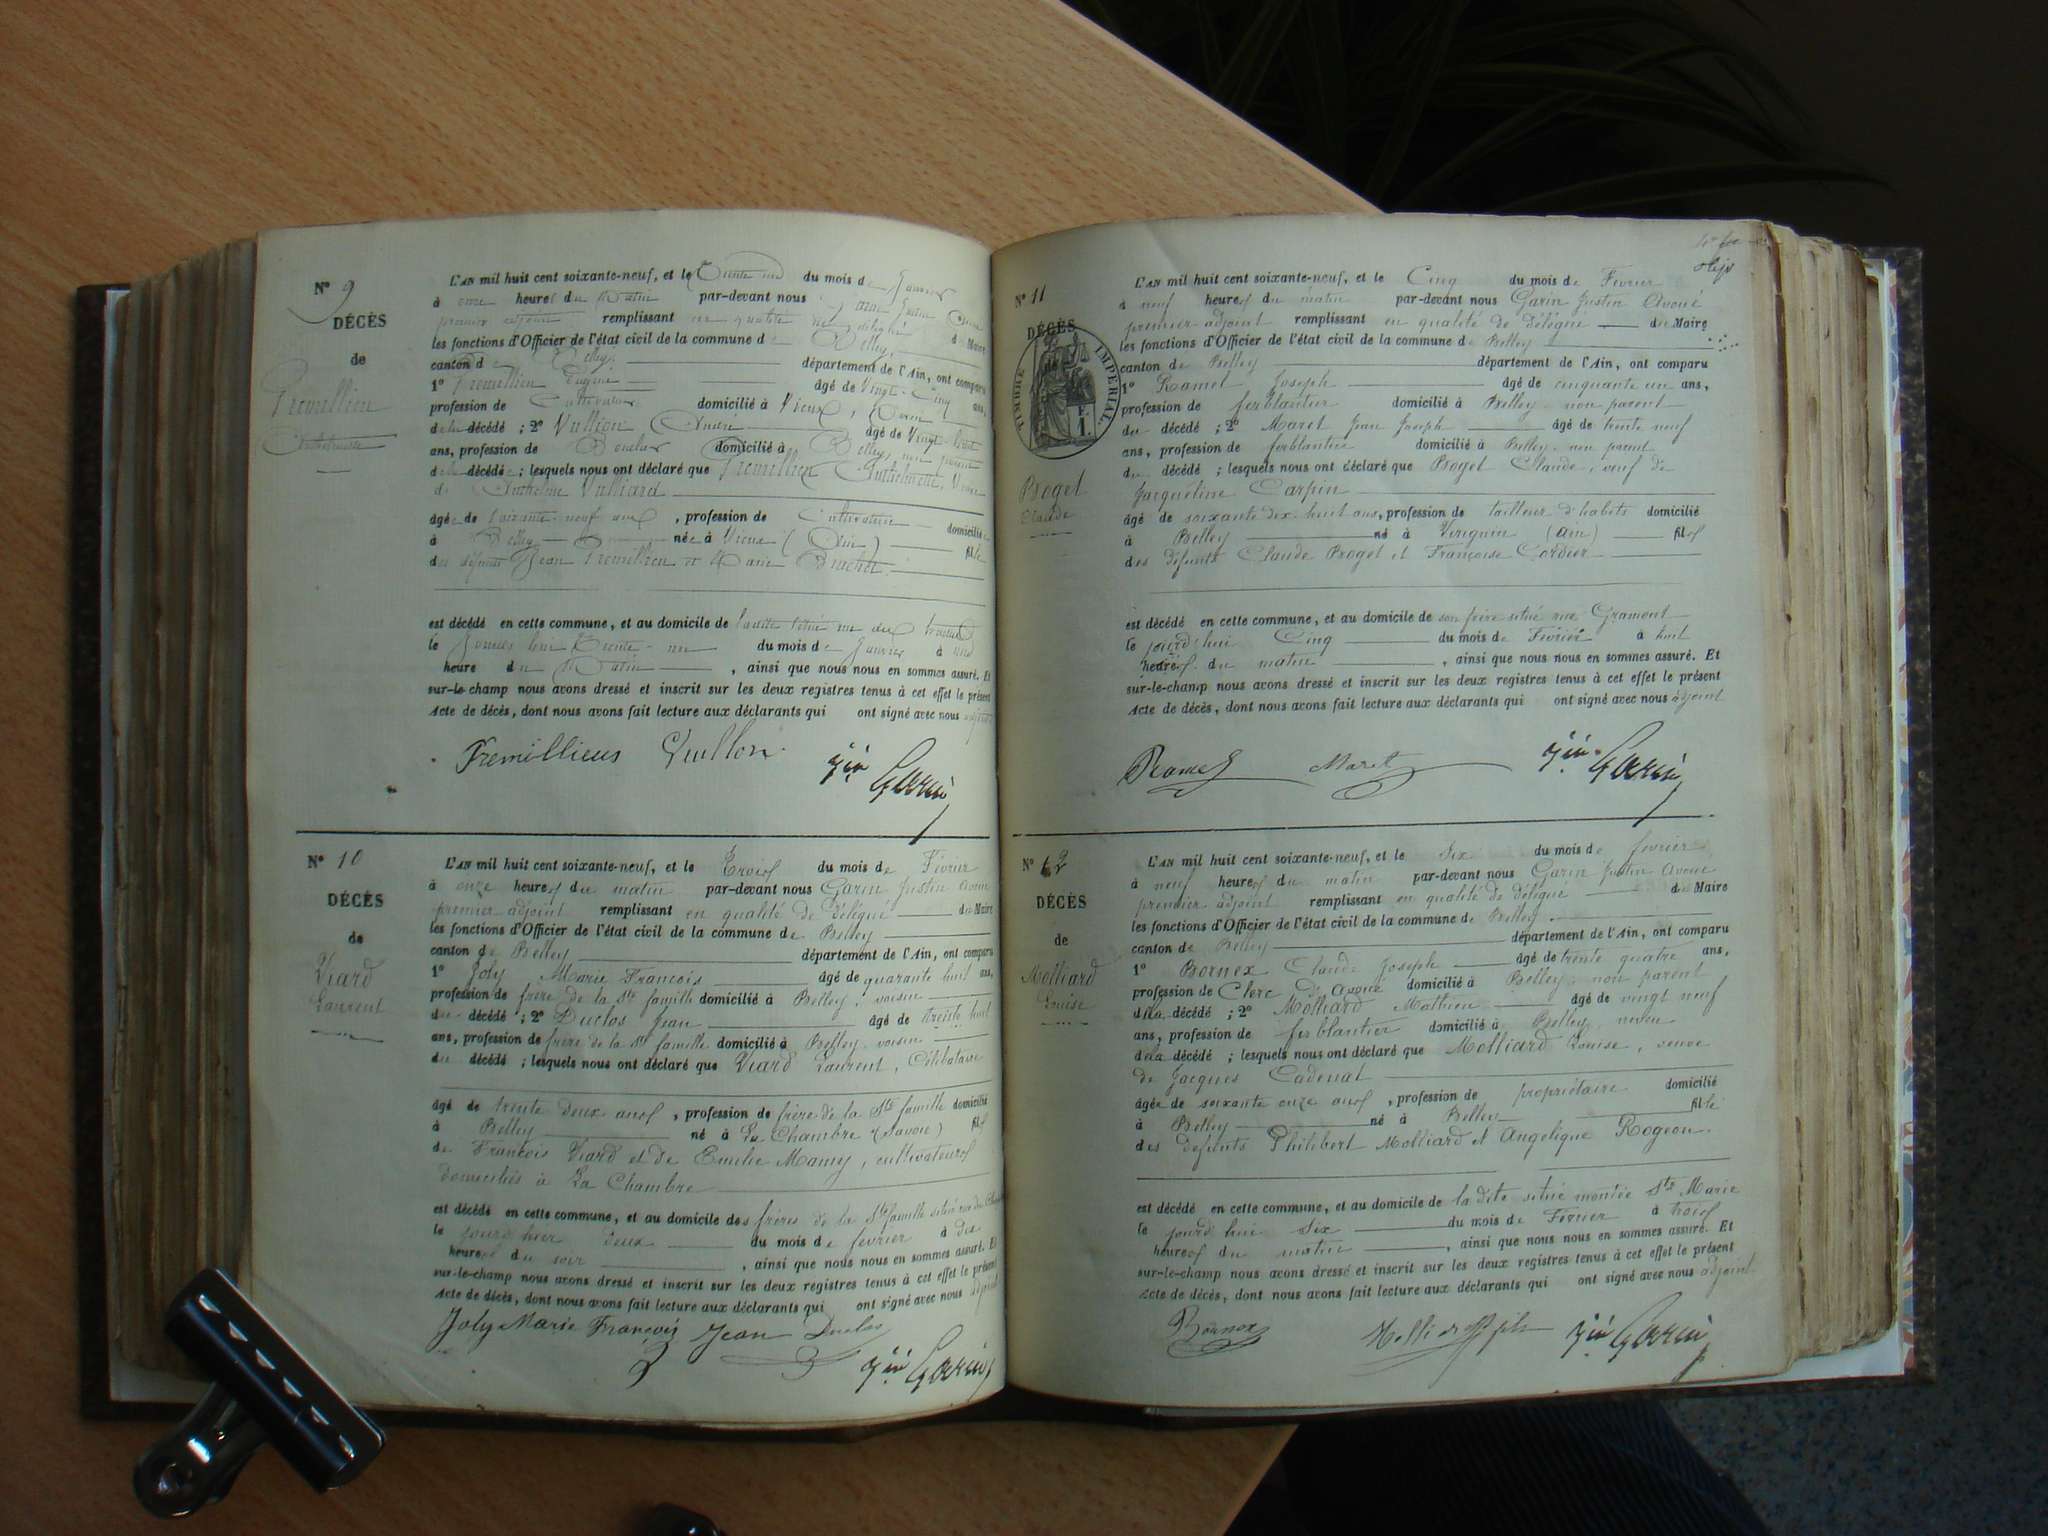 N° 9
DÉCÈS
de
Tremillien
Anthelmette
L'AN mil huit cent soixante-neuf, et le Trente un du mois de Janvier
à onze heures du Matin par-devant nous Garin Justin Avoué
premier adjoint remplissant en qualité de délégué du Maire
les fonctions d'Officier de l'état civil de la commune de Belley,
canton de Belley département de l'Ain, ont comparu
1° Tremillien Eugène âgé de Vingt-Cinq ans,
profession de Cultivateur domicilié à Vieux, (Ain)
de la décédé ; 2° Vullion André âgé de Vingt-huit
ans, profession de domicilié à Belley, non parent
de la décédée ; lesquels nous ont déclaré que Tremillien Anthelmette, Veuve
de Anthelme Vulliard
âgée de soixante-neuf ans, profession de Cultivatrice domiciliée
à Belley née à Vieux (Ain) fille
des défunts Jean Tremillien et Marie
est décédé en cette commune, et au domicile de ladite située rue des
le Jourd'hui Trente-un du mois de Janvier à une
heure du Matin , ainsi que nous nous en sommes assuré. Et
sur-le-champ nous avons dressé et inscrit sur les deux registres tenus à cet effet le présent
Acte de décès, dont nous avons fait lecture aux déclarants qui ont signé avec nous adjoint
Tremillieus Vuillon Jin Garin
N° 10
DÉCÈS
de
Viard
Laurent
L'AN mil huit cent soixante-neuf, et le Trois du mois de Février
à onze heures du matin par-devant nous Garin Justin Avoué
premier adjoint remplissant en qualité de délégué du Maire
les fonctions d'Officier de l'état civil de la commune de Belley
canton de Belley département de l'Ain, ont comparu
1° Joly Marie François âgé de quarante huit ans,
profession de frère de la Ste famille domicilié à Belley, voisin
du décédé ; 2° Duclos Jean âgé de trente huit
ans, profession de frère de la Ste famille domicilié à Belley, voisin
du décédé ; lesquels nous ont déclaré que Viard Laurent, Célibataire
âgé de trente deux ans , profession de frère de la Ste famille domicilié
à Belley né à La Chambre (Savoie) fils
de François Viard et de Emilie Mamy, cultivateurs
domiciliés à La Chambre
est décédé en cette commune, et au domicile des frères de la Ste famille situé rue du
le jour d'hier deux du mois de février à dix
heures du soir , ainsi que nous nous en sommes assuré. Et
sur-le-champ nous avons dressé et inscrit sur les deux registres tenus à cet effet le présent
Acte de décès, dont nous avons fait lecture aux déclarants qui ont signé avec nous adjoint
Joly Marie François Jean Duclos Jin Garin
N° 11
DÉCÈS
de
TIMBRE IMPÉRIAL.
Proget
Claude
L'AN mil huit cent soixante-neuf, et le Cinq du mois de Février
à neuf heures du matin par-devant nous Garin Justin Avoué
premier adjoint remplissant en qualité de délégué du Maire
les fonctions d'Officier de l'état civil de la commune de Belley
canton de Belley département de l'Ain, ont comparu
1° Ramel Joseph âgé de cinquante un ans,
profession de ferblantier domicilié à Belley non parent
du décédé ; 2° Maret Jean Joseph âgé de trente neuf
ans, profession de ferblantier domicilié à Belley non parent
du décédé ; lesquels nous ont déclaré que Proget Claude, veuf de
Jacqueline Carpin
âgé de soixante dix-huit ans, profession de tailleur d'habits domicilié
à Belley né à Virignin (ain) fils
des défunts Claude Proget et Françoise Cordier
est décédé en cette commune, et au domicile de son frère situé rue Gramont
le jourd'hui Cinq du mois de Février à huit
heures du matin , ainsi que nous nous en sommes assuré. Et
sur-le-champ nous avons dressé et inscrit sur les deux registres tenus à cet effet le présent
Acte de décès, dont nous avons fait lecture aux déclarants qui ont signé avec nous adjoint
Ramel Maret Jin Garin
N° 12
DÉCÈS
de
Molliard
Louise
L'AN mil huit cent soixante-neuf, et le six du mois de février
à neuf heures du matin par-devant nous Garin Justin Avoué
premier adjoint remplissant en qualité de délégué du Maire
les fonctions d'Officier de l'état civil de la commune de Belley
canton de Belley département de l'Ain, ont comparu
1° Bornex Claude Joseph âgé de trente quatre ans,
profession de Clerc d'avoué domicilié à Belley non parent
de la décédé ; 2° Molliard Mathieu âgé de vingt neuf
ans, profession de ferblantier domicilié à Belley neveu
de la décédé ; lesquels nous ont déclaré que Molliard Louise, veuve
de Jacques Cadenat
âgée de soixante onze ans , profession de propriétaire domicilié
à Belley né à Belley fille
des défunts Philibert Molliard et Angelique Rogeon.
est décédé en cette commune, et au domicile de la dite situé montée Ste Marie
le jourd'hui Six du mois de Février à trois
heures du matin , ainsi que nous nous en sommes assuré. Et
sur-le-champ nous avons dressé et inscrit sur les deux registres tenus à cet effet le présent
Acte de décès, dont nous avons fait lecture aux déclarants qui ont signé avec nous adjoint
Bornex Jin Garin